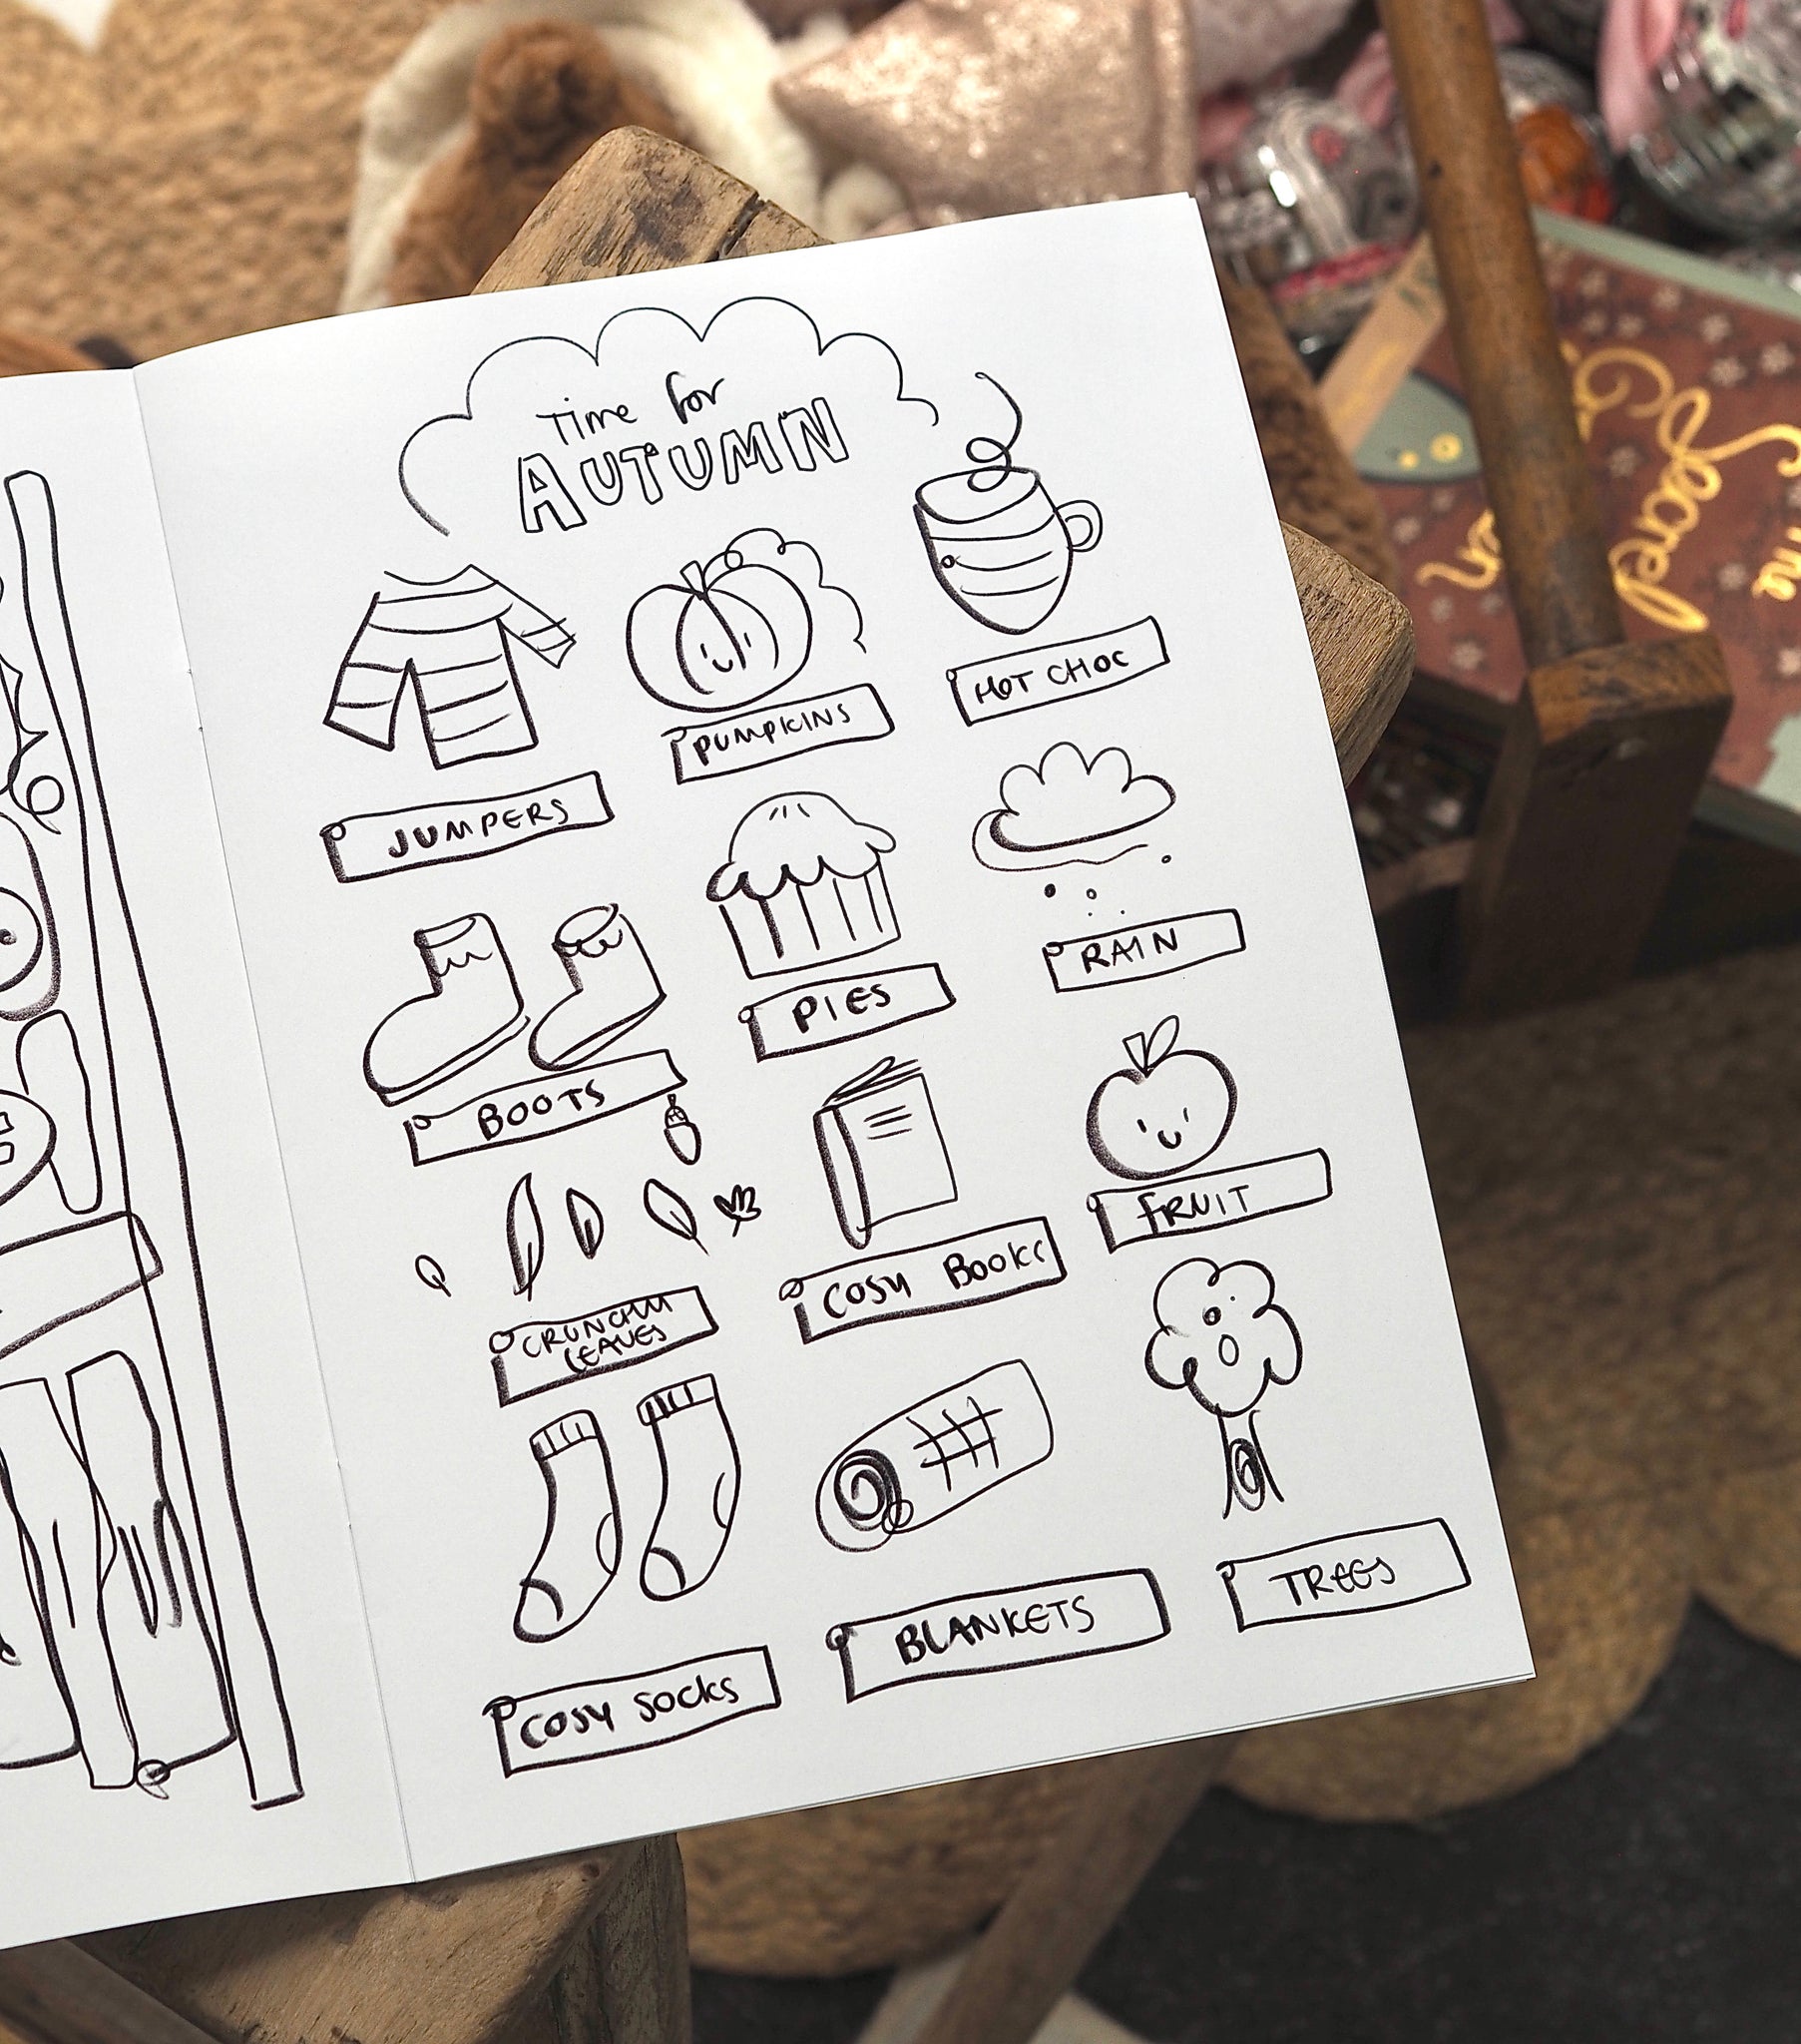 Time for
AUTUMN
JUMPERS
PUMPKINS
HOT CHOC
BOOTS
PIES
RAIN
CRUNCHY
LEAVES
COSY BOOKS
FRUIT
COSY SOCKS
BLANKETS
TREES
The
Secret